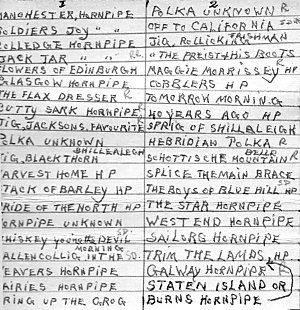 1 2
MANCHESTER, HORNPIPE POLKA UNKNOWN R
SOLDIERS JOY " " OFF TO CALIFORNIA
ROLLEDGE HORNPIPE JIG, ROLLICKING IRISHMAN
JACK TAR " " " THE PREIST & HIS BOOTS
FLOWERS OF EDINBURGH MAGGIE MORRISSEY HP
GLASGOW HORNPIPE COBBLERS HP
THE FLAX DRESSER R TOMORROW MORNING
CUTTY SARK HORNPIPE, R 40 YEARS AGO HP
JIG, JACKSONS, FAVOURITE SPRIG OF SHILLALEIGH
POLKA UNKNOWN HEBRIDIAN POLKA R
SHILLEALEGH BELLE
JIG, BLACKTHORN SCHOTTISCHE MOUNTAIN R
HARVEST HOME HP SPLICE THE MAIN BRACE
STACK OF BARLEY HP THE BOYS OF BLUE HILL HP SD
PRIDE OF THE NORTH HP THE STAR HORNPIPE
HORNPIPE UNKNOWN WEST END HORNPIPE
WHISKEY YOU'RE THE DEVIL SD. SAILORS HORNPIPE
MORNING
ALLENCOLLIG, IN THE SD. TRIM THE LAMPS, HP
WEAVERS HORNPIPE GALWAY HORNPIPE
FAIRIES HORNPIPE STATEN ISLAND OR
BRING UP THE GROG BURNS HORNPIPE